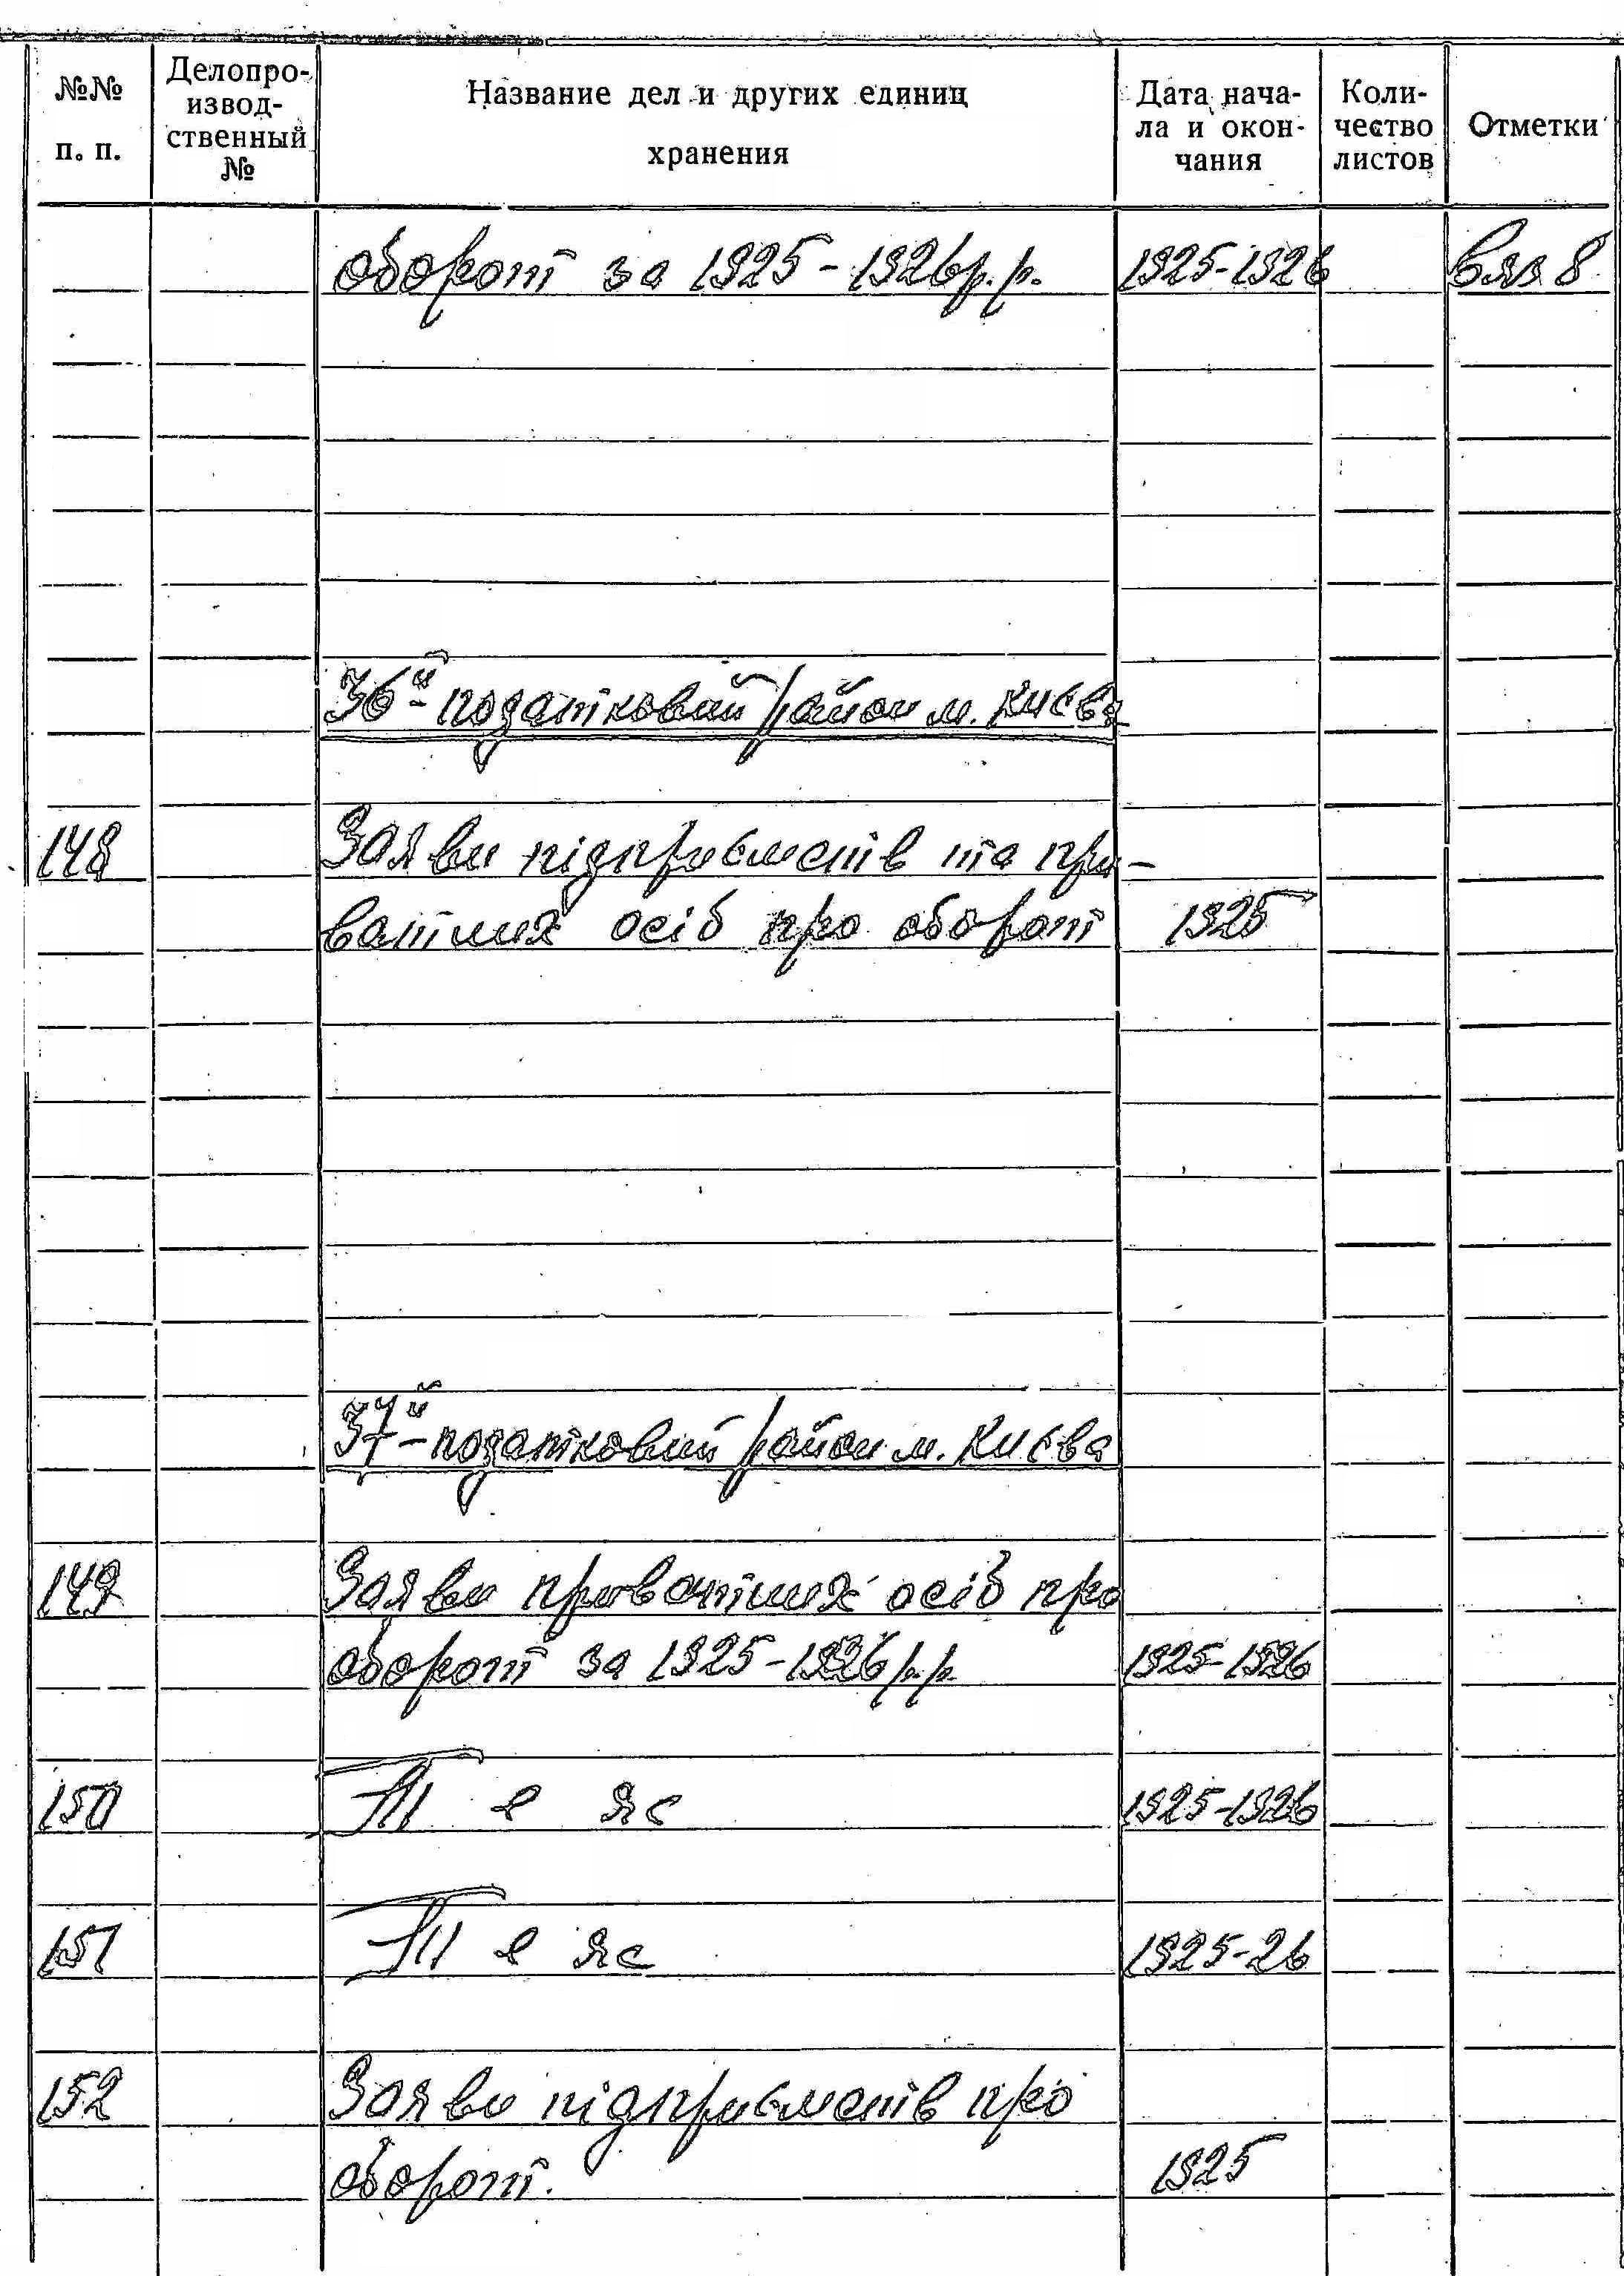 №№ п. п. Делопро-извод-ственный № Название дел и других единиц хранения Дата нача-ла и окон-чания Коли-чество листов Отметки
оборот за 1925-1926 р.р. 1925-1926 Вяз 8
36й - податковий район м. Києва
148 Заяви підприємств та при-
ватних осіб про оборот 1925
37й - податковий район м. Києва
149 Заяви приватних осіб про
оборот за 1925-1926 р.р. 1925-1926
150 Те ж 1925-1926
151 Те ж 1925-26
152 Заяви підприємств про
оборот. 1925